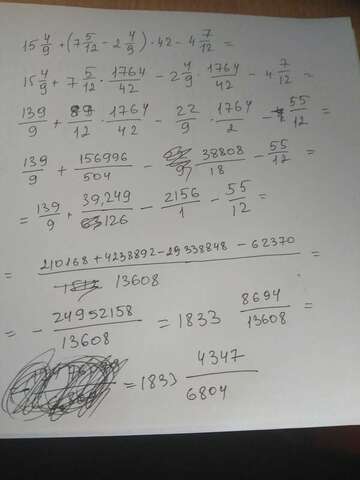 15 4/9 + (7 5/12 - 2 4/9) · 42 - 4 7/12 =
15 4/9 + 7 5/12 · 1764/42 - 2 4/9 · 1764/42 - 4 7/12 =
139/9 + 89/12 · 1764/42 - 22/9 · 1764/2 - 55/12 =
139/9 + 156996/504 - 38808/18 - 55/12 =
= 139/9 + 39,249/126 - 2156/1 - 55/12 =
= 210168 + 4238892 - 29338848 - 62370/13608 =
= - 24952158/13608 = 1833 8694/13608 =
= 1833 4347/6804